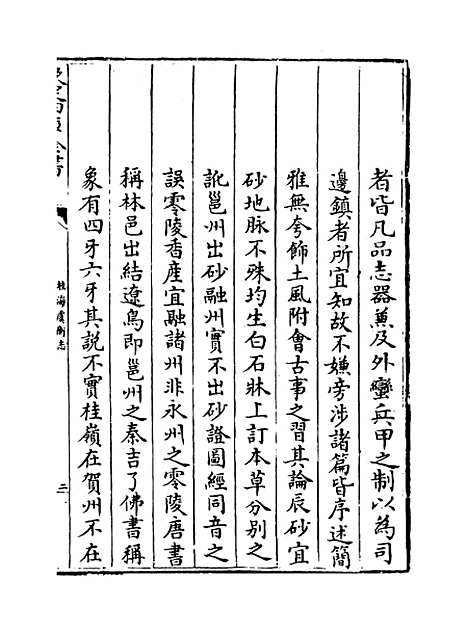 者皆凡品志器兼及外蠻兵甲之制以為司
邊鎮者所宜知故不嫌旁涉諸篇皆序述簡
雅無夸飾土風附會古事之習其論辰砂宜
砂地脉不殊均生白石牀上訂本草分别之
訛邕州出砂融州實不出砂證圖經同音之
誤零陵香産宜融諸州非永州之零陵唐書
稱林邑出結遼鳥即邕州之秦吉了佛書稱
象有四牙六牙其說不實桂嶺在賀州不在
桂海虞衡志
三